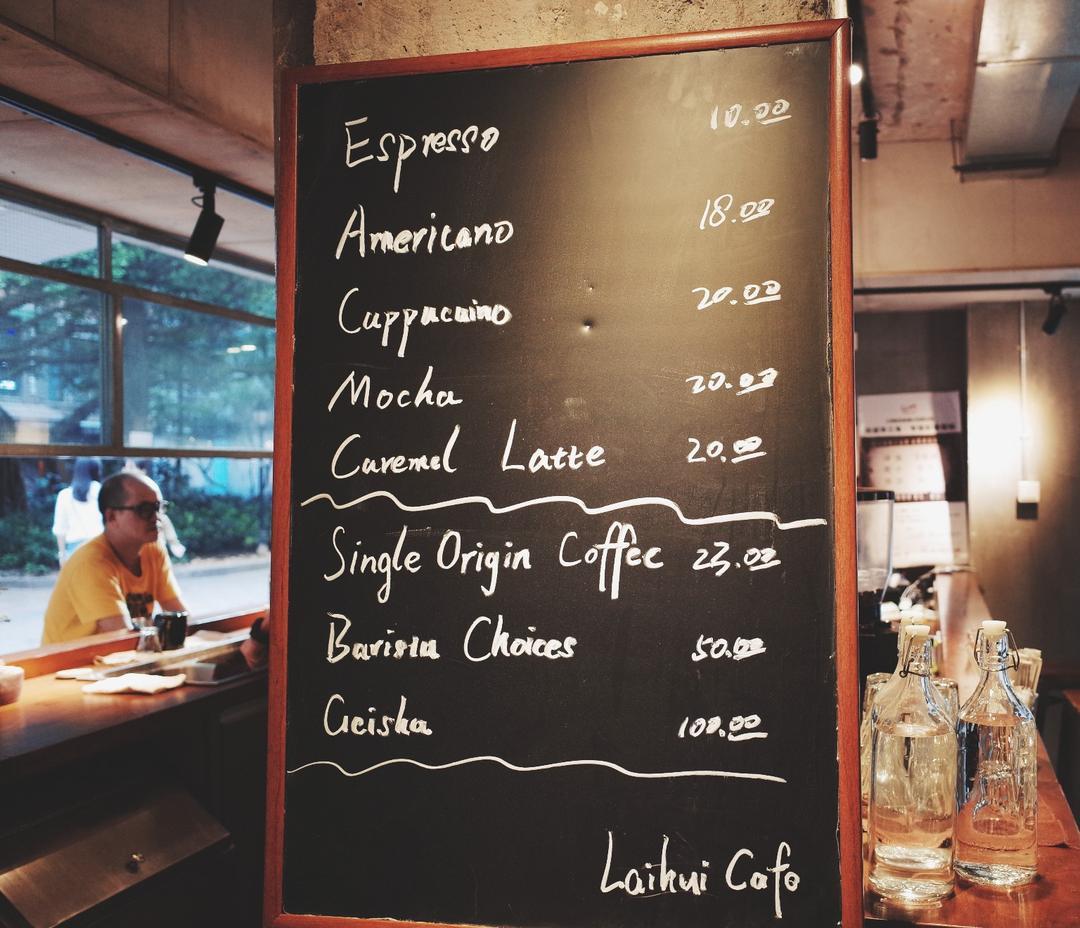 Espresso 10.00
Americano 18.00
Cuppuccino 20.00
Mocha 20.00
Caramel Latte 20.00
Single Origin Coffee 23.00
Barista Choices 50.00
Geisha 100.00
Laihui Cafe